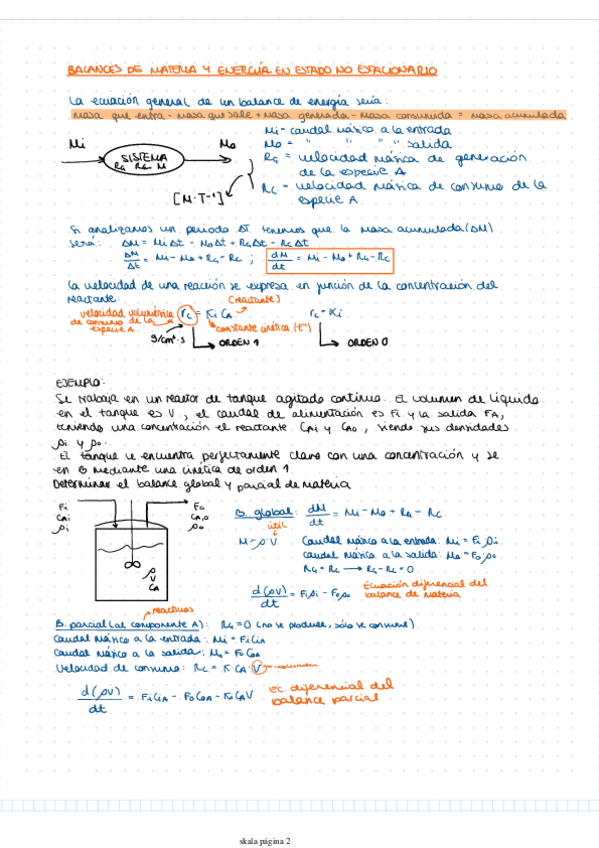 BALANCES DE MATERIA Y ENERGÍA EN ESTADO NO ESTACIONARIO
La ecuación general de un balance de energía sería:
Masa que entra - Masa que sale + Masa generada - Masa consumida = Masa acumulada
Mi SISTEMA RG RC M Mo
[M·T⁻¹]
Mi - caudal másico a la entrada
Mo = " " " " salida
RG = velocidad másica de generación
de la especie A
RC = velocidad másica de consumo de la
especie A.
Si analizamos un periodo ΔT tenemos que la masa acumulada (ΔM)
será: ΔM = Mi Δt - Mo Δt + RG Δt - RC Δt
ΔM/Δt = Mi - Mo + RG - RC ; dM/dt = Mi - Mo + RG - RC
La velocidad de una reacción se expresa en función de la concentración del
reactante: (reactante)
velocidad volumétrica de consumo de la especie A rc = Ki CA rc = Ki
g/cm³·s constante cinética (t⁻¹)
ORDEN 1 ORDEN 0
EJEMPLO:
Se trabaja en un reactor de tanque agitado continuo. El volumen de líquido
en el tanque es V, el caudal de alimentación es Fi y la salida FA,
teniendo una concentración el reactante CAi y CAo, siendo sus densidades
ρi y ρo.
El tanque se encuentra perfectamente clave con una concentración y se
en B mediante una cinética de orden 1
Determinar el balance global y parcial de materia
Fi
CAi
ρi
Fo
CA,o
ρo
ρ
V
CA
B. global: dM/dt = Mi - Mo + RG - RC
útil:
M = ρ·V Caudal másico a la entrada: Mi = Fi ρi
caudal másico a la salida: Mo = Fo·ρo
RG = RC → RG - RC = 0
d(ρV)/dt = Fi ρi - Fo ρo Ecuación diferencial del
balance de materia
reactivos
B. parcial (al componente A): RG = 0 (no se produce, sólo se consume)
Caudal másico a la entrada: Mi = Fi CiA
Caudal másico a la salida: Mo = Fo CoA
Velocidad de consumo: RC = K CA·V volumen
d(ρV)/dt = Fi CiA - Fo CoA - Ki CA V Ec. diferencial del
balance parcial
skala página 2